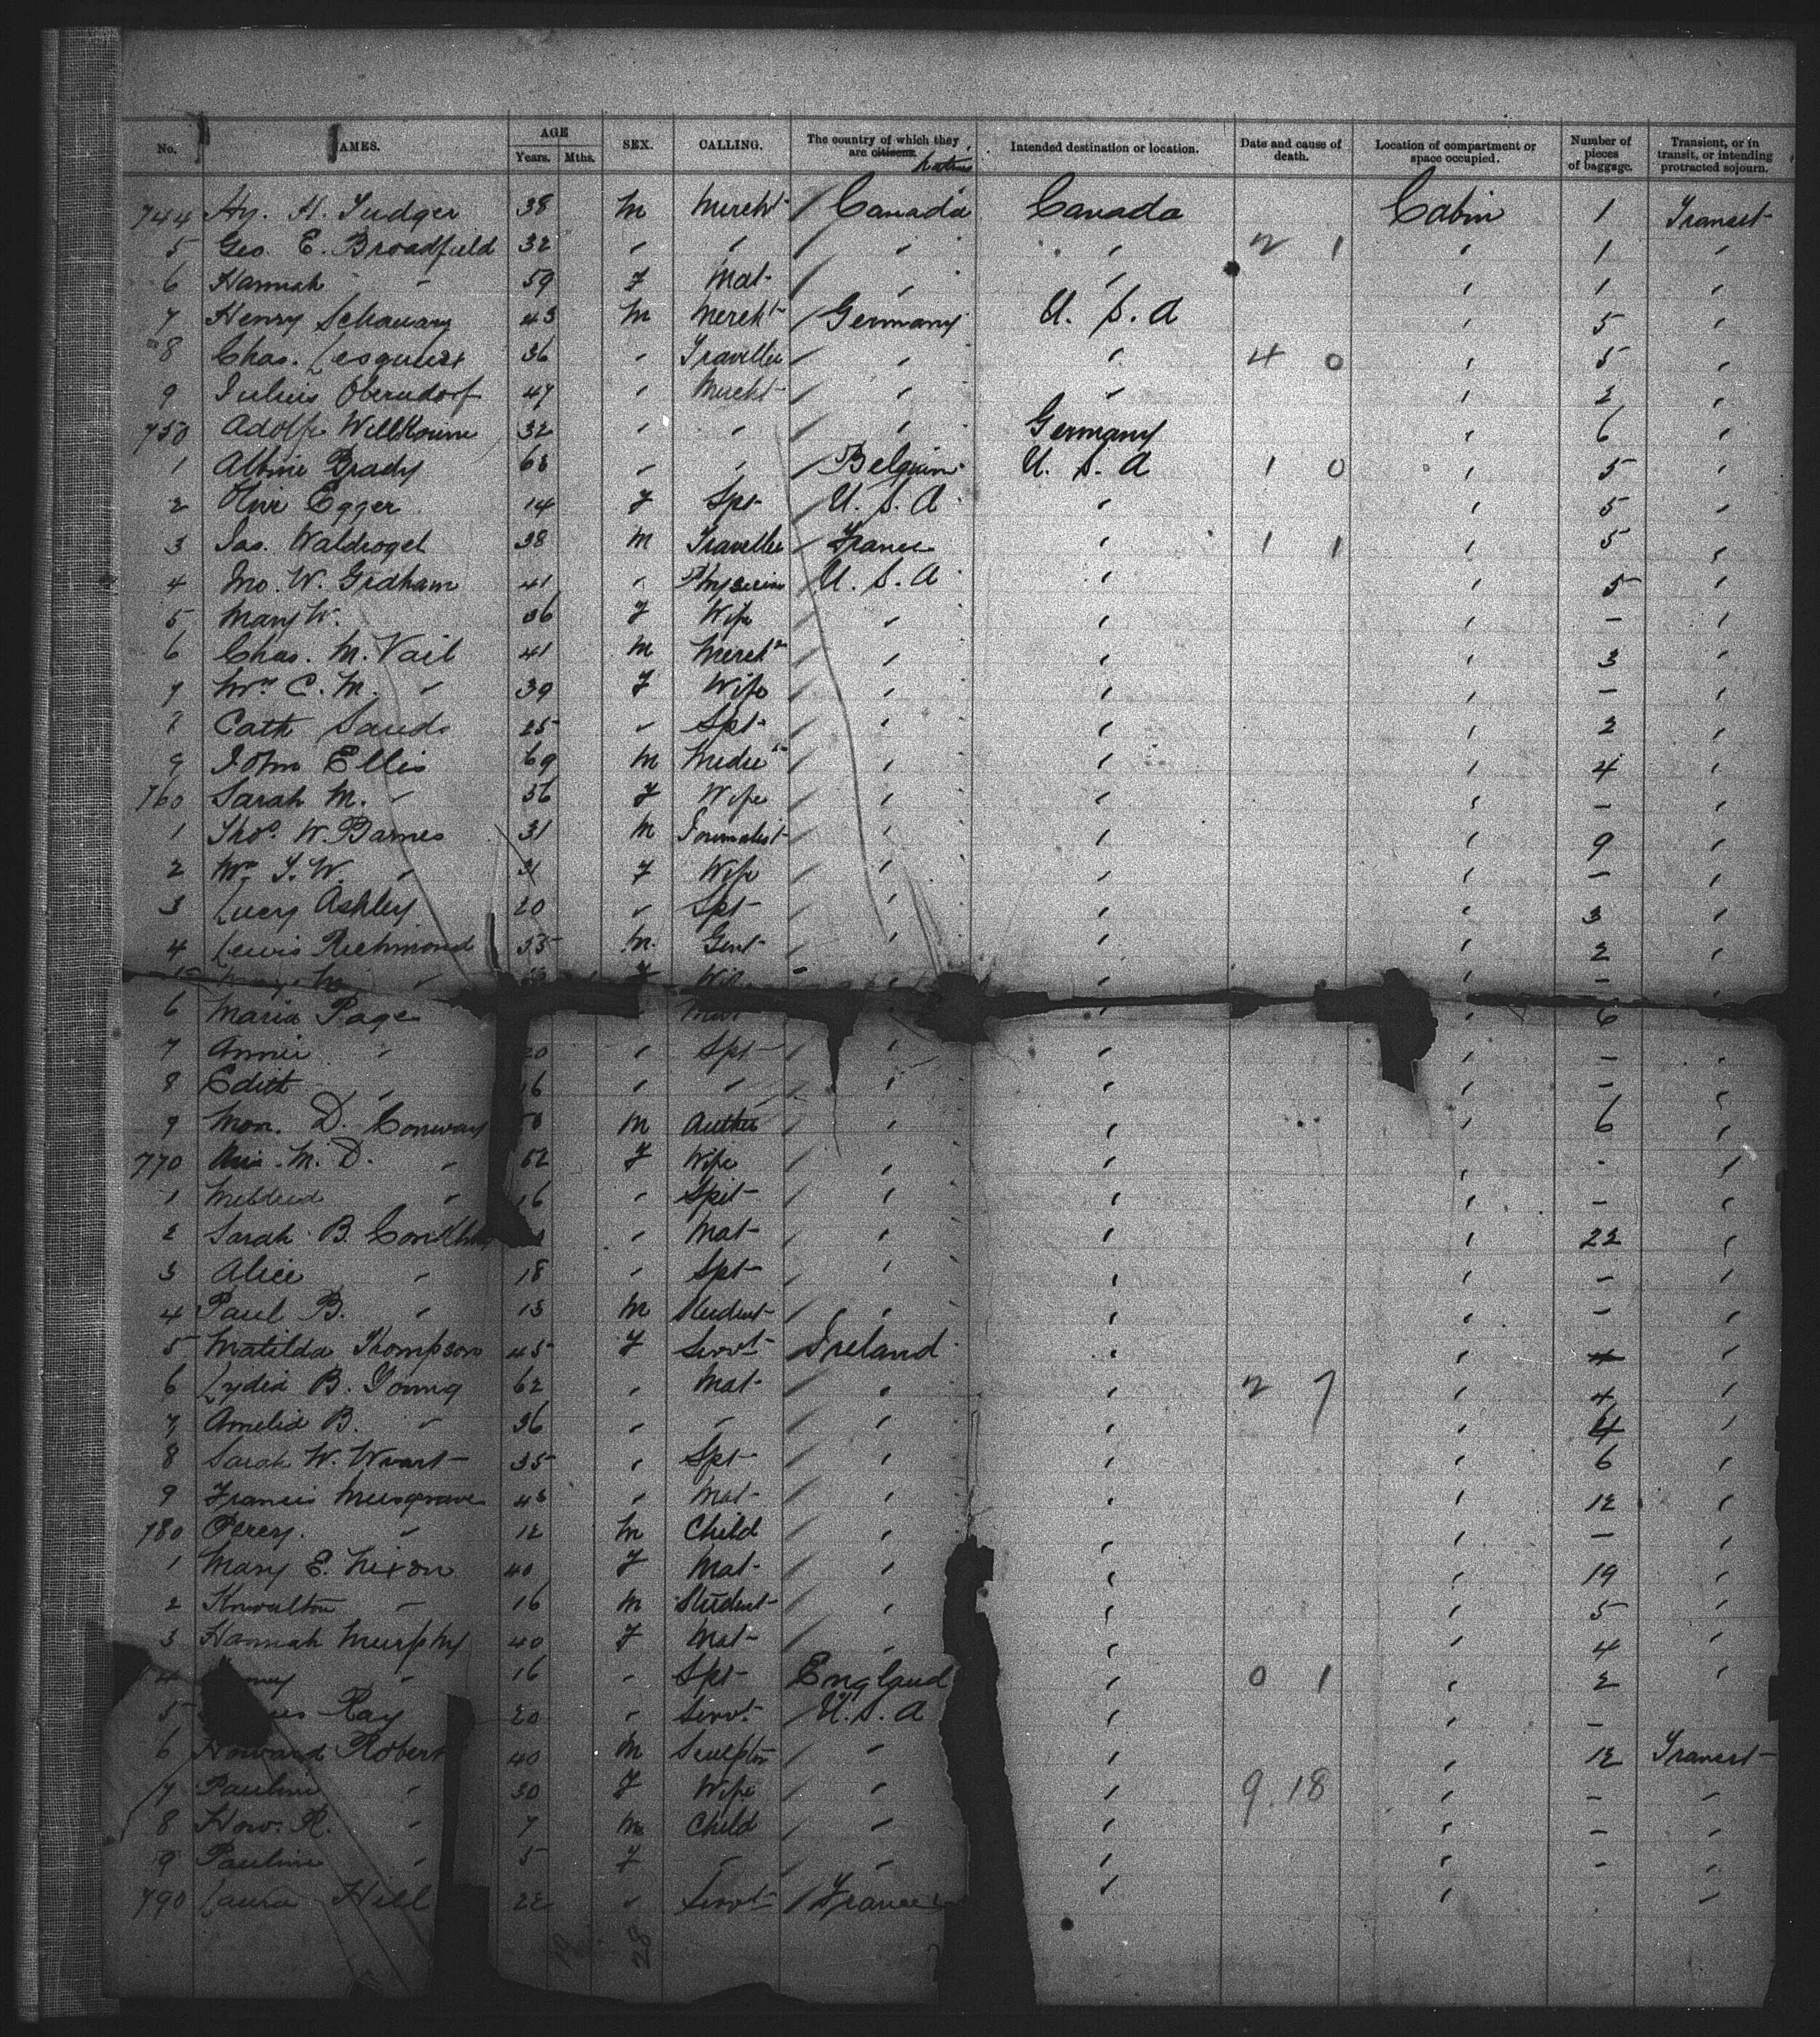 No. NAMES. AGE Years. Mths. SEX. CALLING. The country of which they are citizens. natives Intended destination or location. Date and cause of death. Location of compartment or space occupied. Number of pieces of baggage. Transient, or in transit, or intending protracted sojourn.
744 Hy. H. Judger 38 M Mercht Canada Canada Cabin 1 Transit
5 Geo. E. Broadfield 32 " " " " 2 1 " 1 "
6 Hannah " 59 F Mat " " " 1 "
7 Henry 43 M Mercht Germany U. S. A " 5 "
8 Chas. 36 " Traveller " " 4 0 " 5 "
9 Julius Oberndorf 47 " Mercht " " " 2 "
750 Adolf 32 " " " Germany " 6 "
1 Brady 63 " " Belgium U. S. A 1 0 " 5 "
2 Egger 14 F Spt U. S. A " " 5 "
3 Jas. Waldvogel 38 M Traveller France " 1 1 " 5 "
4 Jno. W. Graham 41 " Physician U. S. A " " 5 "
5 Mary W. 36 F Wife " " " – "
6 Chas. M. Vail 41 M Mercht " " " 3 "
7 Mrs C. M. " 39 F Wife " " " – "
8 Cath Sands 25 " Spt " " " 2 "
9 John Ellis 69 M Medic " " " 4 "
760 Sarah M. " 56 F Wife " " " – "
1 Thos. W. Barnes 31 M Journalist " " " 9 "
2 Mrs T. W. " 31 F Wife " " " – "
3 Lucy Ashley 20 " Spt " " " 3 "
4 Lewis Richmond 53 M. Gent " " " 2 "
" " " " – "
6 Maria Page " " " 6 "
7 Annie " 20 " Spt " " " – "
8 Edith " 16 " " " " " – "
9 Mon. D. Conway M Author " " " 6 "
770 M. D. " 52 F Wife " " " – "
1 Mildred " 16 " Spt " " " – "
2 Sarah B. " Mat " " " 22 "
3 Alice " 18 " Spt " " " – "
4 Paul B. " 13 M Student " " " – "
5 Matilda Thompson 45 F Servt Ireland " " 4 "
6 Lydia B. Young 62 " Mat " " 2 7 " 4 "
7 Amelia B. " 36 " " " " " 4 "
8 Sarah W. 35 " Spt " " " 6 "
9 Francis Musgrave 43 " Mat " " " 12 "
780 Percy. " 12 M Child " " " – "
1 Mary E. Nixon 40 F Mat " " " 19 "
2 Knowlton " 16 M Student " " " 5 "
3 Hannah Murphy 40 F Mat " " " 4 "
4 " 16 " Spt England " 0 1 " 2 "
5 Ray 20 " Servt U. S. A " " –
6 Howard Robert 40 M Sculptor " " " 12 Transit
7 Pauline " 30 F Wife " " 9.18 " – "
8 How. R. " 7 M Child " " " – "
9 Pauline " 5 F " " " " – "
790 Laura Hill 22 " Servt France " " "
28